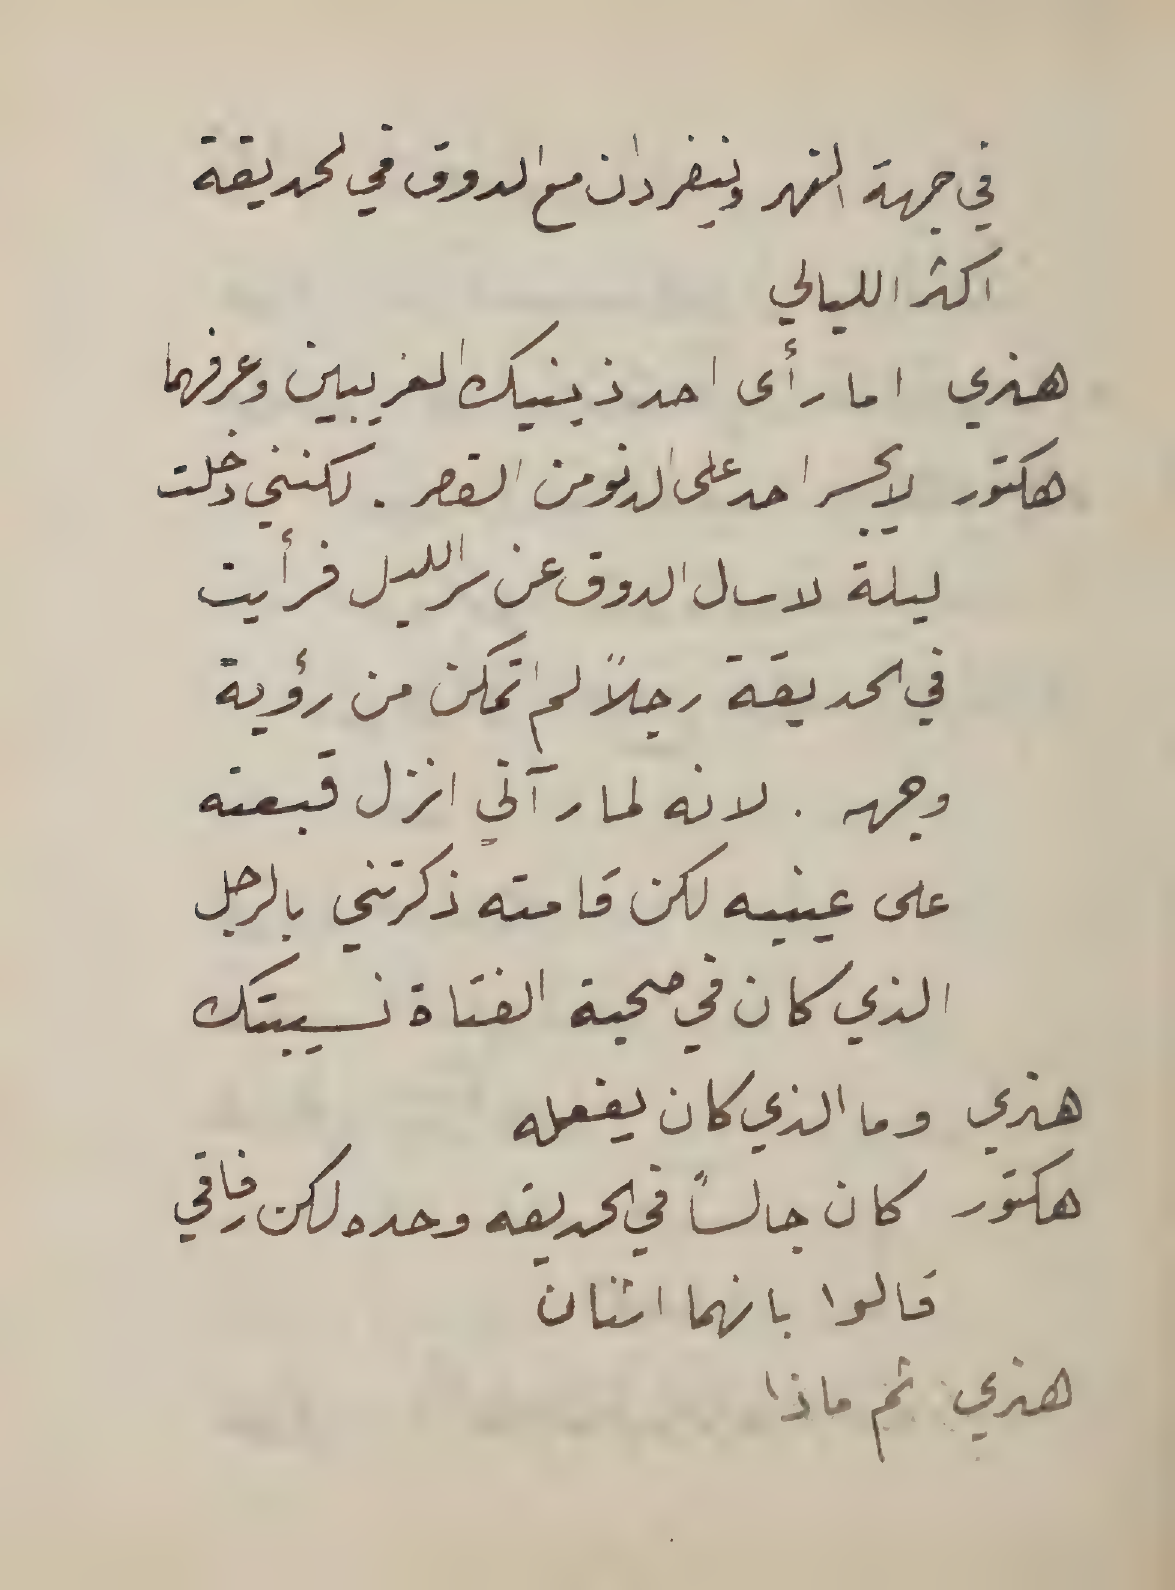 في جهة النهر وينفردان مع الدوق في الحديقة
اكثر الليالي
هنري اما رأى احد ذينيك الغريبين وعرفهما
هكتور لا يجسر احد على الدنو من القصر . لكنني دخلت
ليلة لاسال الدوق عن سر الليل فرأيت
في الحديقة رجلاً لم اتمكن من رؤية
وجهه . لانه لما رآني انزل قبعته
على عينيه لكن قامته ذكرتني بالرجل
الذي كان في صحبة الفتاة نسيبتك
هنري وما الذي كان يفعله
هكتور كان جالساً في الحديقه وحده لكن رفاقي
قالوا بانهما اثنان
هنري ثم ماذا